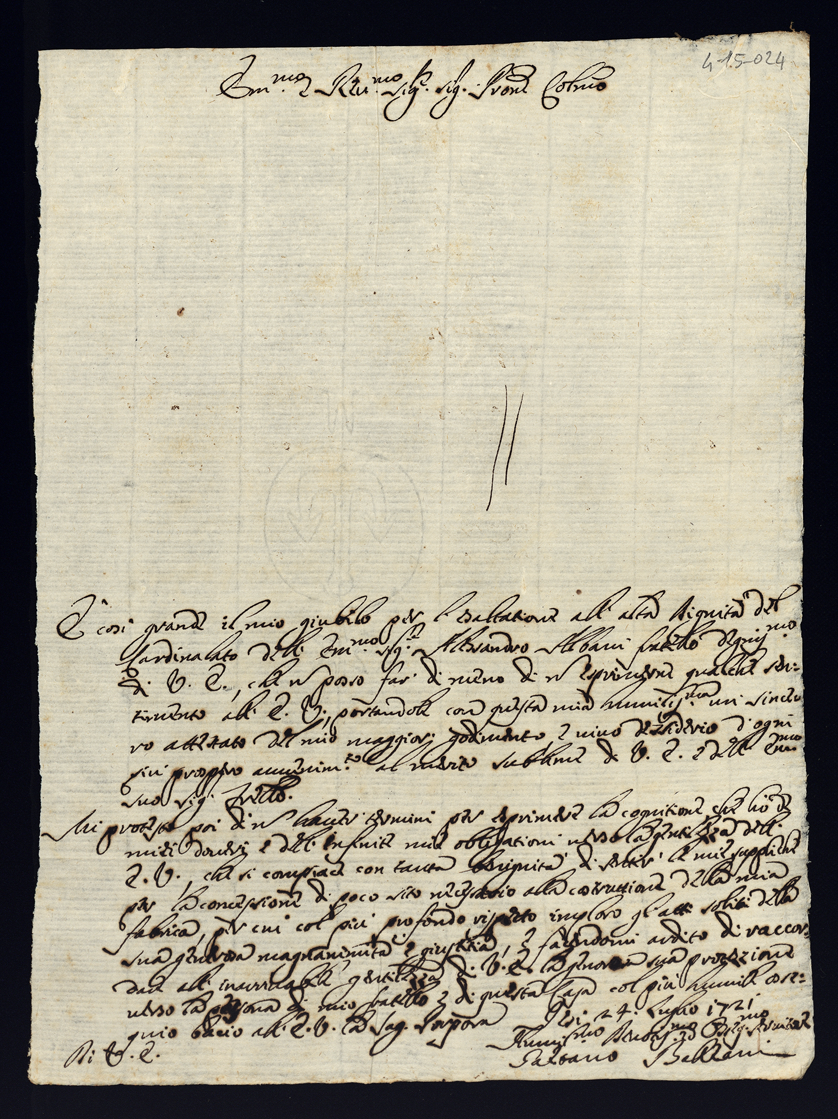 4-15-024
Em.mo e R.mo Sig.r Sig. Pron Colmo
È così grande il mio giubilo per l'esaltatione all'alta Dignità del
Cardinalato dell'Em.mo Sig.r Alessandro Albani fratello degniss.mo
di V. E., che nõ posso far di meno di nõ esprimere qualche sen-
timento all'E. V., portandole con questa mia humiliss.ma un since-
ro attestato del mio maggior godimento e vivo desiderio d'ogni
più prospero avvenim.to al merito sublime di V. E. e dell'Em.mo
suo Sig. Frello.
Mi protesto poi di nõ haver termini per esprimere la cognitione, che hò de
miei doveri e dell'infinite mie obligationi verso la gentilezza dell'
E. V., che si compiacè con tanta benignità di sentir le mie suppliche
per la concessione di poco sito necessario alla costruttione della mia
fabrica, per cui col più profondo rispetto imploro gl'atti soliti della
sua generosa magnanimità e giustitia, e facendomi ardito di raccor-
dare all'inarrivabile gentilezza di V. E. la generosa sua protezzione
verso la persona di mio fratello e di questa Casa col più humile osse-
quio bacio all'E. V. la Sag. Porpora
Di V. E. 24 Luglio 1721
Humiliss.mo Obblig.mo Servitore
Gaetano